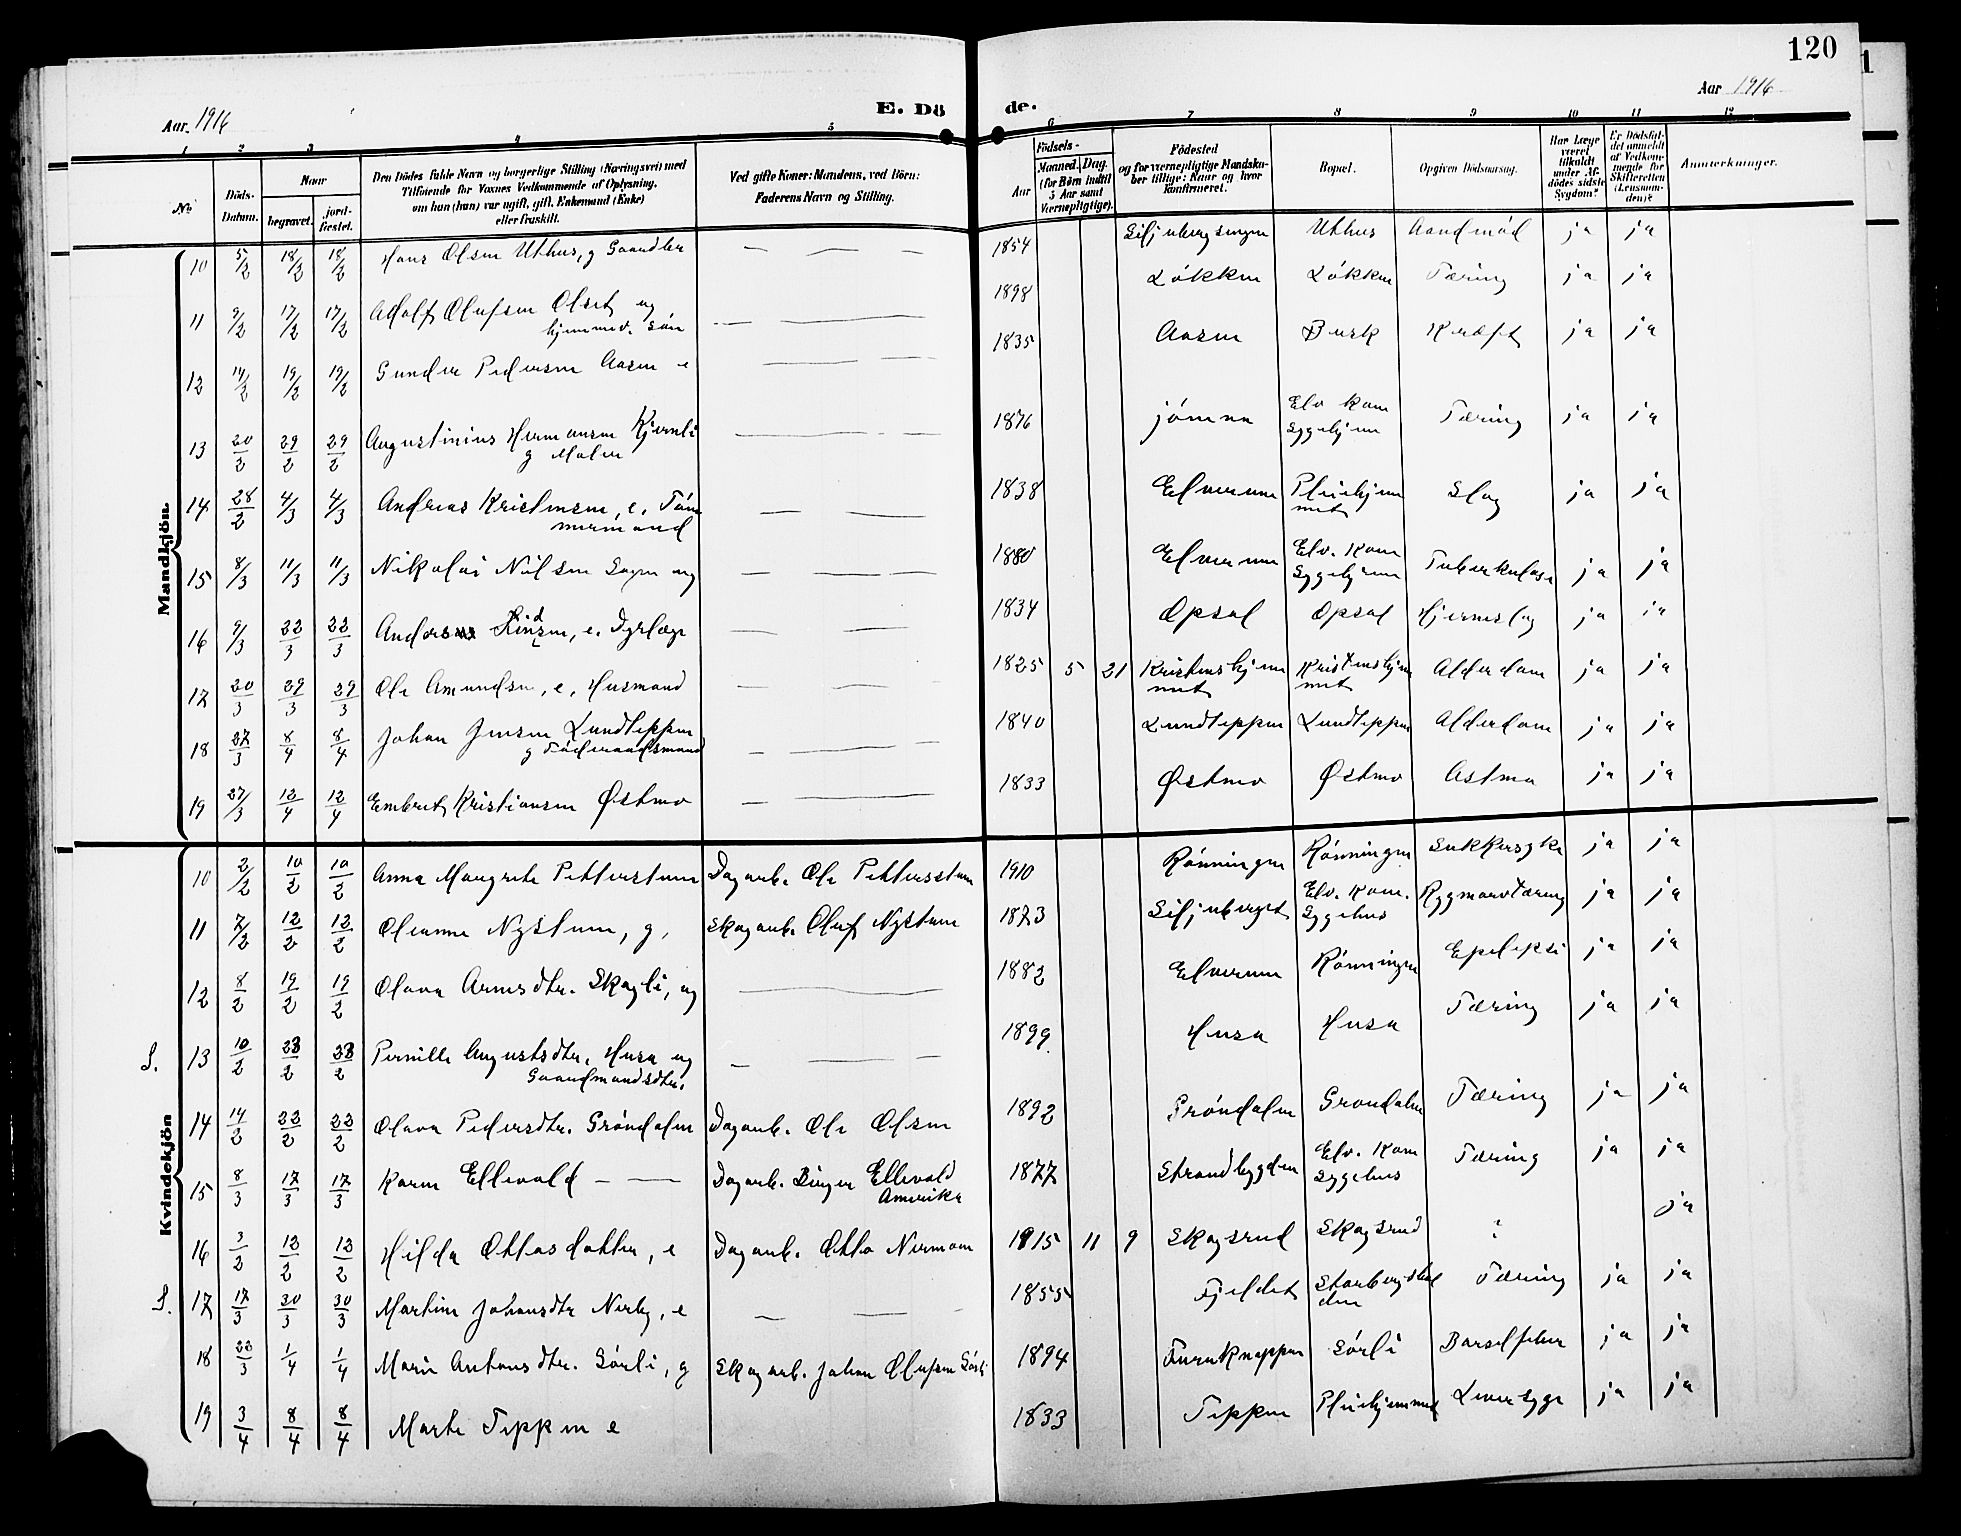 120
1
Aar 1916
E. Dö
de.
Aar 1916
1 2 3 4 5 6 7 8 9 10 11 12
No
Döds-Datum.
Naar
begravet.
jordfæstet.
Den Dödes fulde Navn og borgerlige Stilling (Næringsvei) med
Tilföiende for Voxnes Vedkommende af Oplysning,
om han (hun) var ugift, gift, Enkemand (Enke)
eller fraskilt.
Ved gifte Koner: Mandens, ved Börn:
Faderens Navn og Stilling.
Födsels-
Aar
Maaned. Dag.
(for Börn indtil
5 Aar samt
Værnepligtige).
Födested
og for værnepligtige Mandska-
ber tillige: Naar og hvor
Konfirmeret.
Bopæl.
Opgiven Dödsaarsag.
Har Læge
været
tilkaldt
under Af-
dødes sidste
Sygdom?
Er Dödsfal-
det anmeldt
af Vedkom-
mende for
Skifteretten
(Lensman-
den)?
Anmærkninger.
Mandkjön.
10 5/2 18/2 18/2 Hans Olsen Uthus, g Gaardbr — — — 1854 Uthus Aandnød ja ja
11 9/2 17/2 17/2 Adolf Olufsen Olset ug — — 1898 Løkken Løkken Tæring ja ja
hjemmev. Søn
12 14/2 19/2 19/2 Gunder Pedersen Aasen e — — 1835 Aasen Busk Kræft ja ja
13 20/2 29/2 29/2 Augustinius Hermansen Kjernli — — — 1876 Jømna Elv kom Sygehjem Tæring ja ja
g Maler
14 28/2 4/3 4/3 Andreas Kristensen, e, Tøm — — 1838 Elverum Pleiehjemmet Slag ja ja
mermand
15 8/3 11/3 11/3 Nikolai Nilsen ug — — — 1880 Elverum Elv. Kom Sygehjem Tuberkulose ja ja
16 9/3 22/3 22/3 e. Dyrlæge — — 1834 Opsal Opsal Hjerneslag ja ja
17 20/3 29/3 29/3 Ole Amundsen, e, Husmand — — — 1825 5 21 Kristenshjemmet Kristenshjemmet Alderdom ja ja
18 27/3 8/4 8/4 Johan Jensen Lundteppen — — — 1840 Lundteppen Lundteppen Alderdom ja ja
g Föderaadsmand
19 27/3 12/4 12/4 Embret Kristiansen Østmo — — 1833 Østmo Østmo Astma ja ja
Kvindekjön
10 2/2 10/2 10/2 Anna Margrete Pettersstuen Dagarb. Ole Pettersstuen 1910 Rønningen Rønningen Sukkersyke ja ja
11 7/2 12/2 12/2 Oleanna Nystuen, g, Skogarb. Oluf Nystuen 1873 Siljuberget Elv. Kom. Sygehus Rygmarvtæring ja ja
12 8/2 19/2 19/2 Olava Arnesdtr. Skogli, ug — — 1882 Elverum Rønningen Epilepsi ja ja
S. 13 10/2 23/2 23/2 Pernille Augustsdtr. Husa ug — — — 1899 Husa Husa Tæring ja ja
Gaardmandsdtr.
14 14/2 22/2 22/2 Olava Pedersdtr. Grøndalen Dagarb. Ole Olsen 1892 Grøndalen Grøndalen Tæring ja ja
15 8/3 17/3 17/3 Karen Ellevold — — Dagarb. Birger Ellevold 1877 Strandbygden Elv. Kom Sygehus Tæring ja ja
Amerika
16 3/2 12/2 12/2 Hilda Ottosdatter, e Dagarb. Otto Nermoen 1915 11 9 Skogsrud Skogsrud ? ja
S. 17 17/3 30/3 30/3 Martine Johansdtr Nerby, e — — 1855 Fjeldet Tæring ja ja
18 22/3 1/4 1/4 Marie Antonsdtr. Sørli, g Skogarb. Johan Olufsen Sørli 1894 Furuknappen Sørli Barselfeber ja ja
19 3/4 8/4 8/4 Marte Teppen e 1833 Teppen Pleiehjemmet Leversyge ja ja